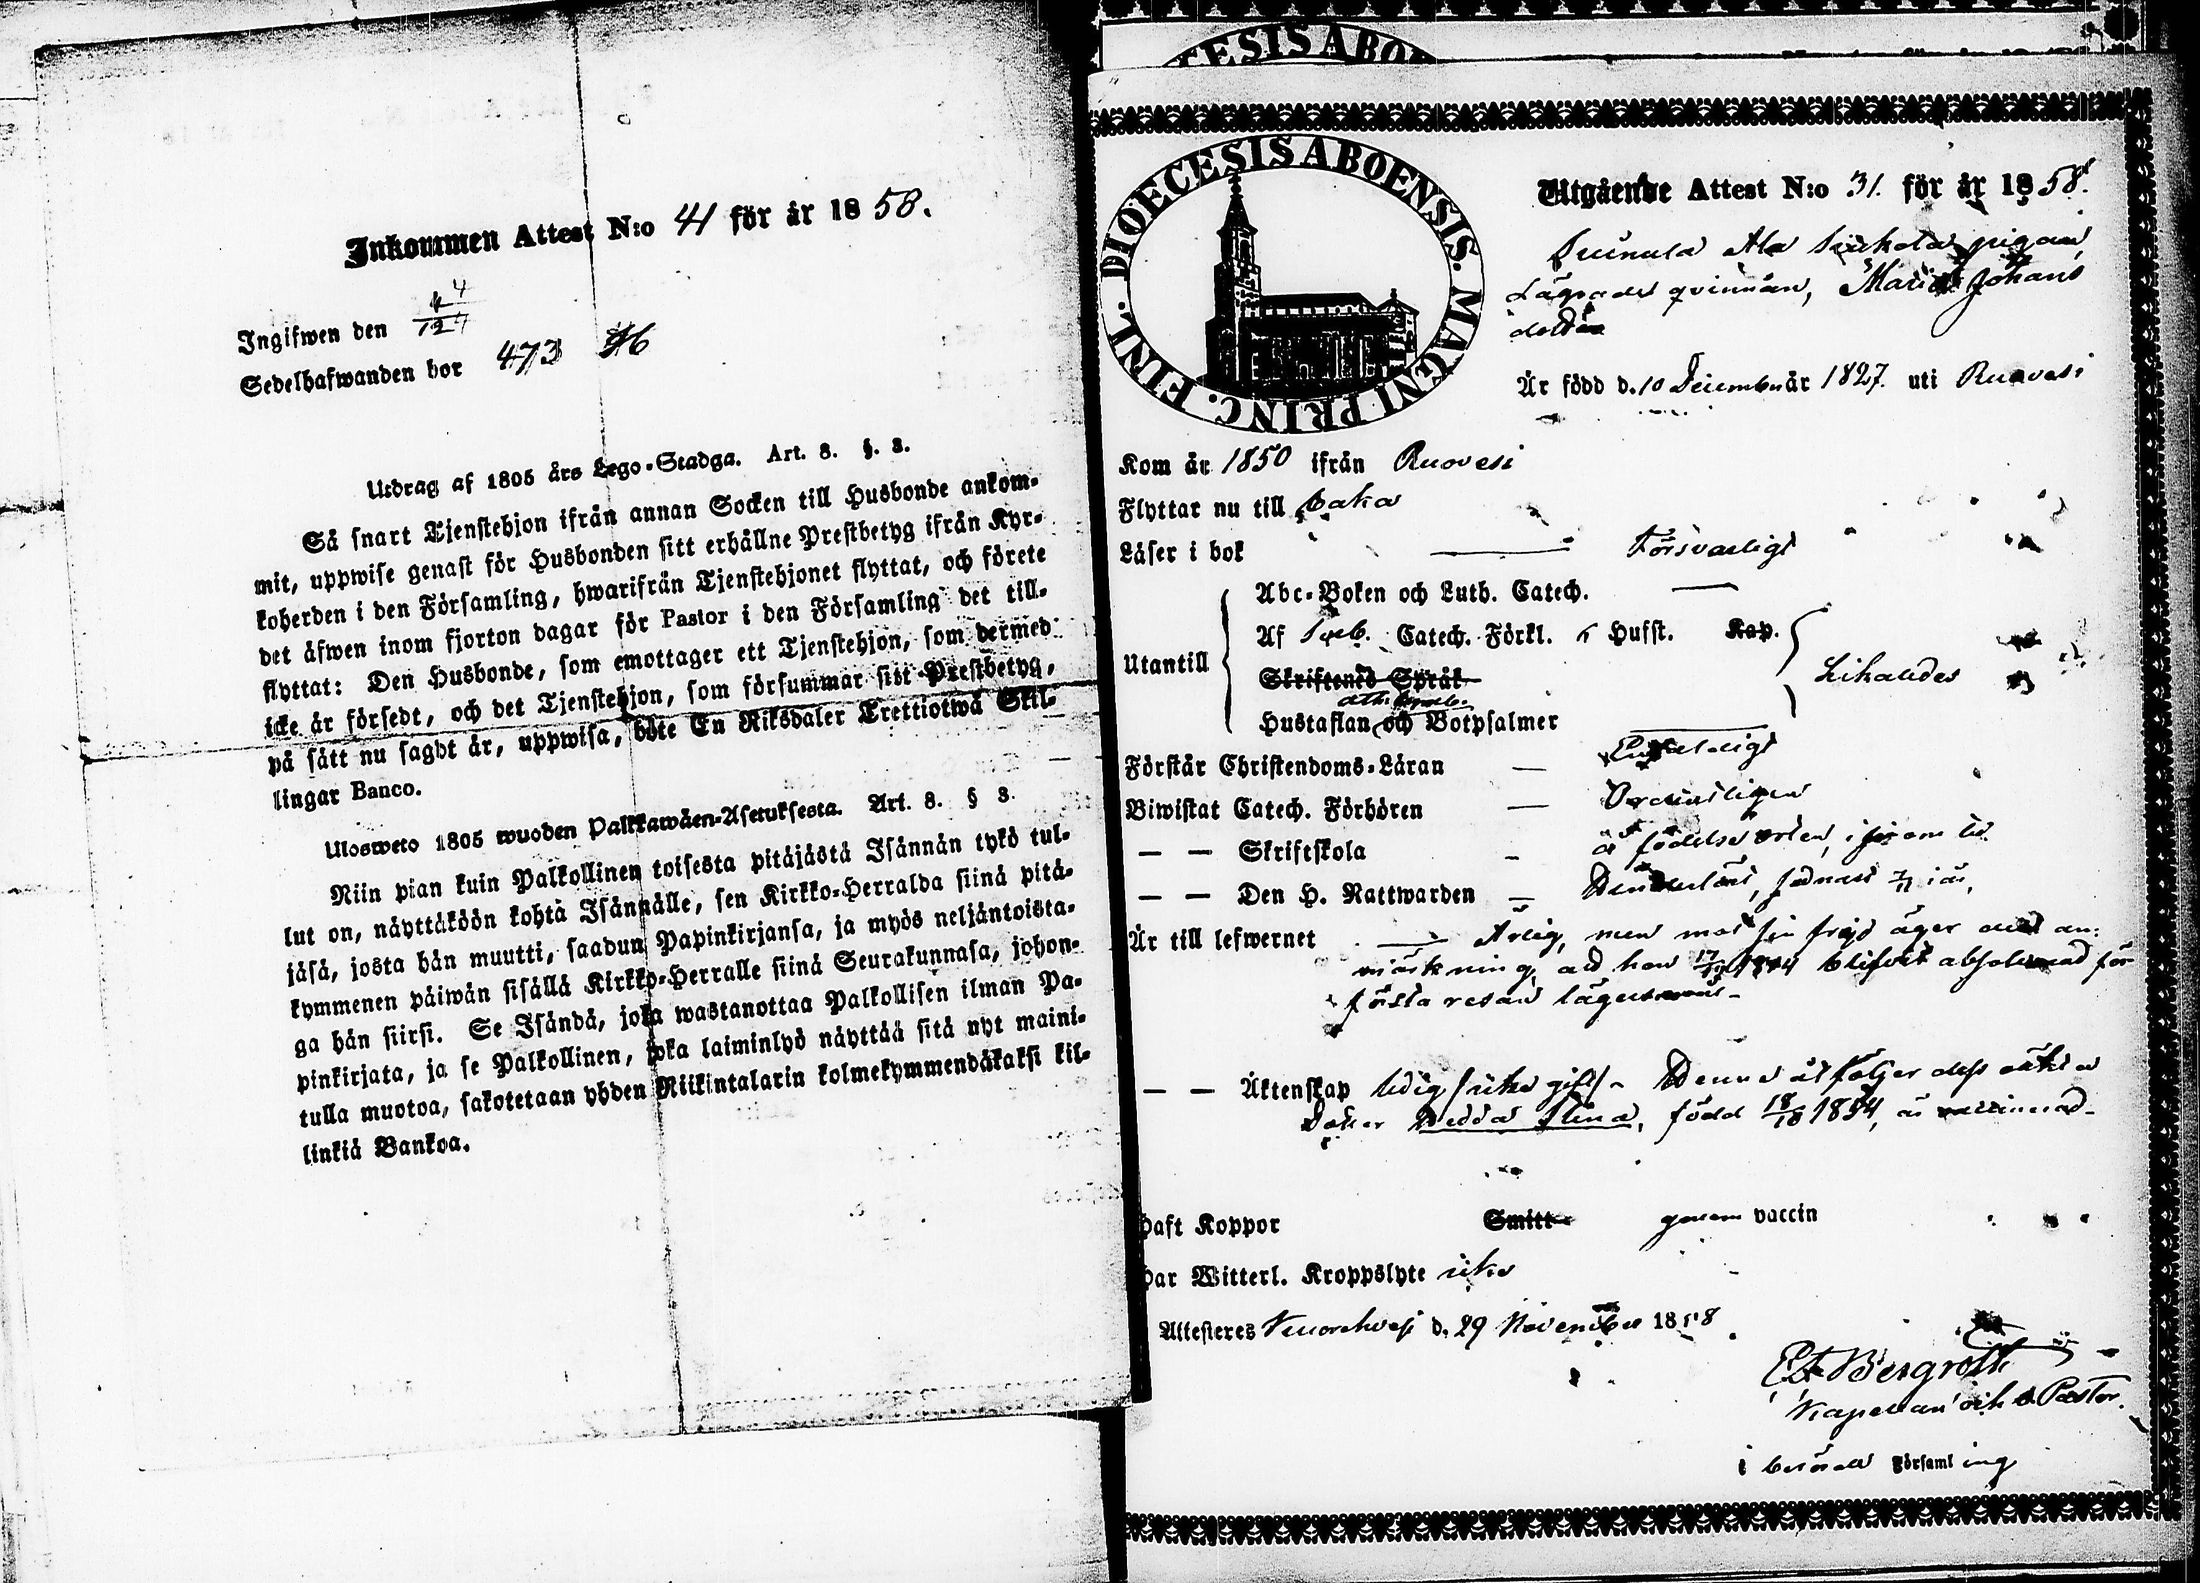 Inkommen Attest N:o 41 för år 1858.
Ingifwen den 4/12
Sedelhafwanden bor 473
Utdrag af 1805 års Lego-Stadga. Art. 8. §. 3.
Så snart Tjenstehjon ifrån annan Socken till Husbonde ankom-
mit, uppwise genast för Husbonden sitt erhållne Prestbetyg ifrån Kyr-
koherden i den Församling, hwarifrån Tjenstehjonet flyttat, och förete
det äfwen inom fjorton dagar för Pastor i den Församling det till-
flyttat: Den Husbonde, som emottager ett Tjenstehjon, som dermed
icke är försedt, och det Tjenstehjon, som försummar sitt Prestbetyg,
på sätt nu sagdt är, uppwisa, böte En Riksdaler Trettiotwå Skil-
lingar Banco.
Ulosweto 1805 wuoden Palkkawäen-Asetuksesta. Art. 8. § 3.
Niin pian kuin Palkollinen toisesta pitäjästä Isännän tykö tul-
lut on, näyttäköön kohta Isännälle, sen Kirkko-Herralda siinä pitä-
jäsä, josta hän muutti, saadun Papinkirjansa, ja myös neljäntoista-
kymmenen päiwän sisällä Kirkko-Herralle siinä Seurakunnasa, johon-
ga hän siirsi. Se Isändä, joka wastanottaa Palkollisen ilman Pa-
pinkirjata, ja se Palkollinen, joka laiminlyö näyttää sitä nyt maini-
tulla muotoa, sakotetaan yhden Riikintalarin kolmekymmendäkaksi kil-
linkiä Bankoa.
DIOECESIS ABOENSIS. MAGNI PRINC. FINL.
Utgående Attest N:o 31. för år 1858.
pigan
Lägrade qvinnan, Maria Johans
dotter
Är född d. 10 December år 1827. uti Ruovesi
Kom år 1850 ifrån Ruovesi
Flyttar nu till
Läser i bok — försvarligt
Abc-Boken och Luth. Catech. —
Af Sveb. Catech. Förkl. Hufst. Kap.
Utantill
Skriftenes Språk
Likaledes
Hustaflan och Botpsalmer
Förstår Christendoms-Läran — Enfaldigt
Biwistat Catech. Förhören — Ordentligen
— — Skriftskola - å födelse orten, i
— — Den H. Nattwarden — i år,
Är till lefwernet — Ärlig, men mot sin frejd äger den an-
märkning att hon blifvit absolverad för
första resan lägersmål -
— — Äktenskap ledig /icke gift/ - Denna åtföljer dess oäkta
Dotter Hedda Stina, född 18/10 1854, är vaccinerad -
Haft Koppor Smitt- genom vaccin
Har Witterl. Kroppslyte icke
Attesteres d. 29 November 1858
Bergroth
Kapellan och v. Pastor.
i berörde Församling